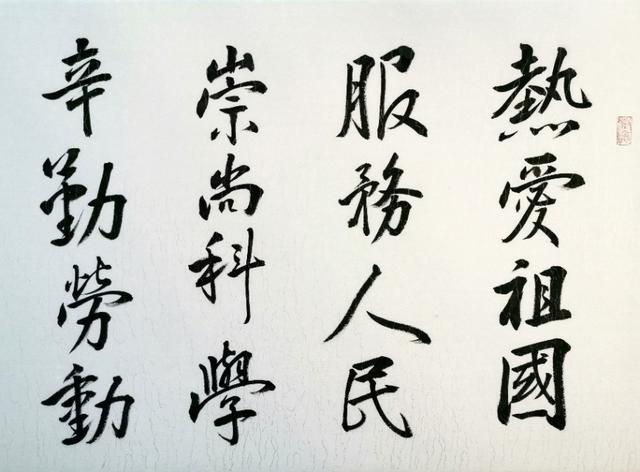 熱愛祖國
服務人民
崇尚科學
辛勤勞動